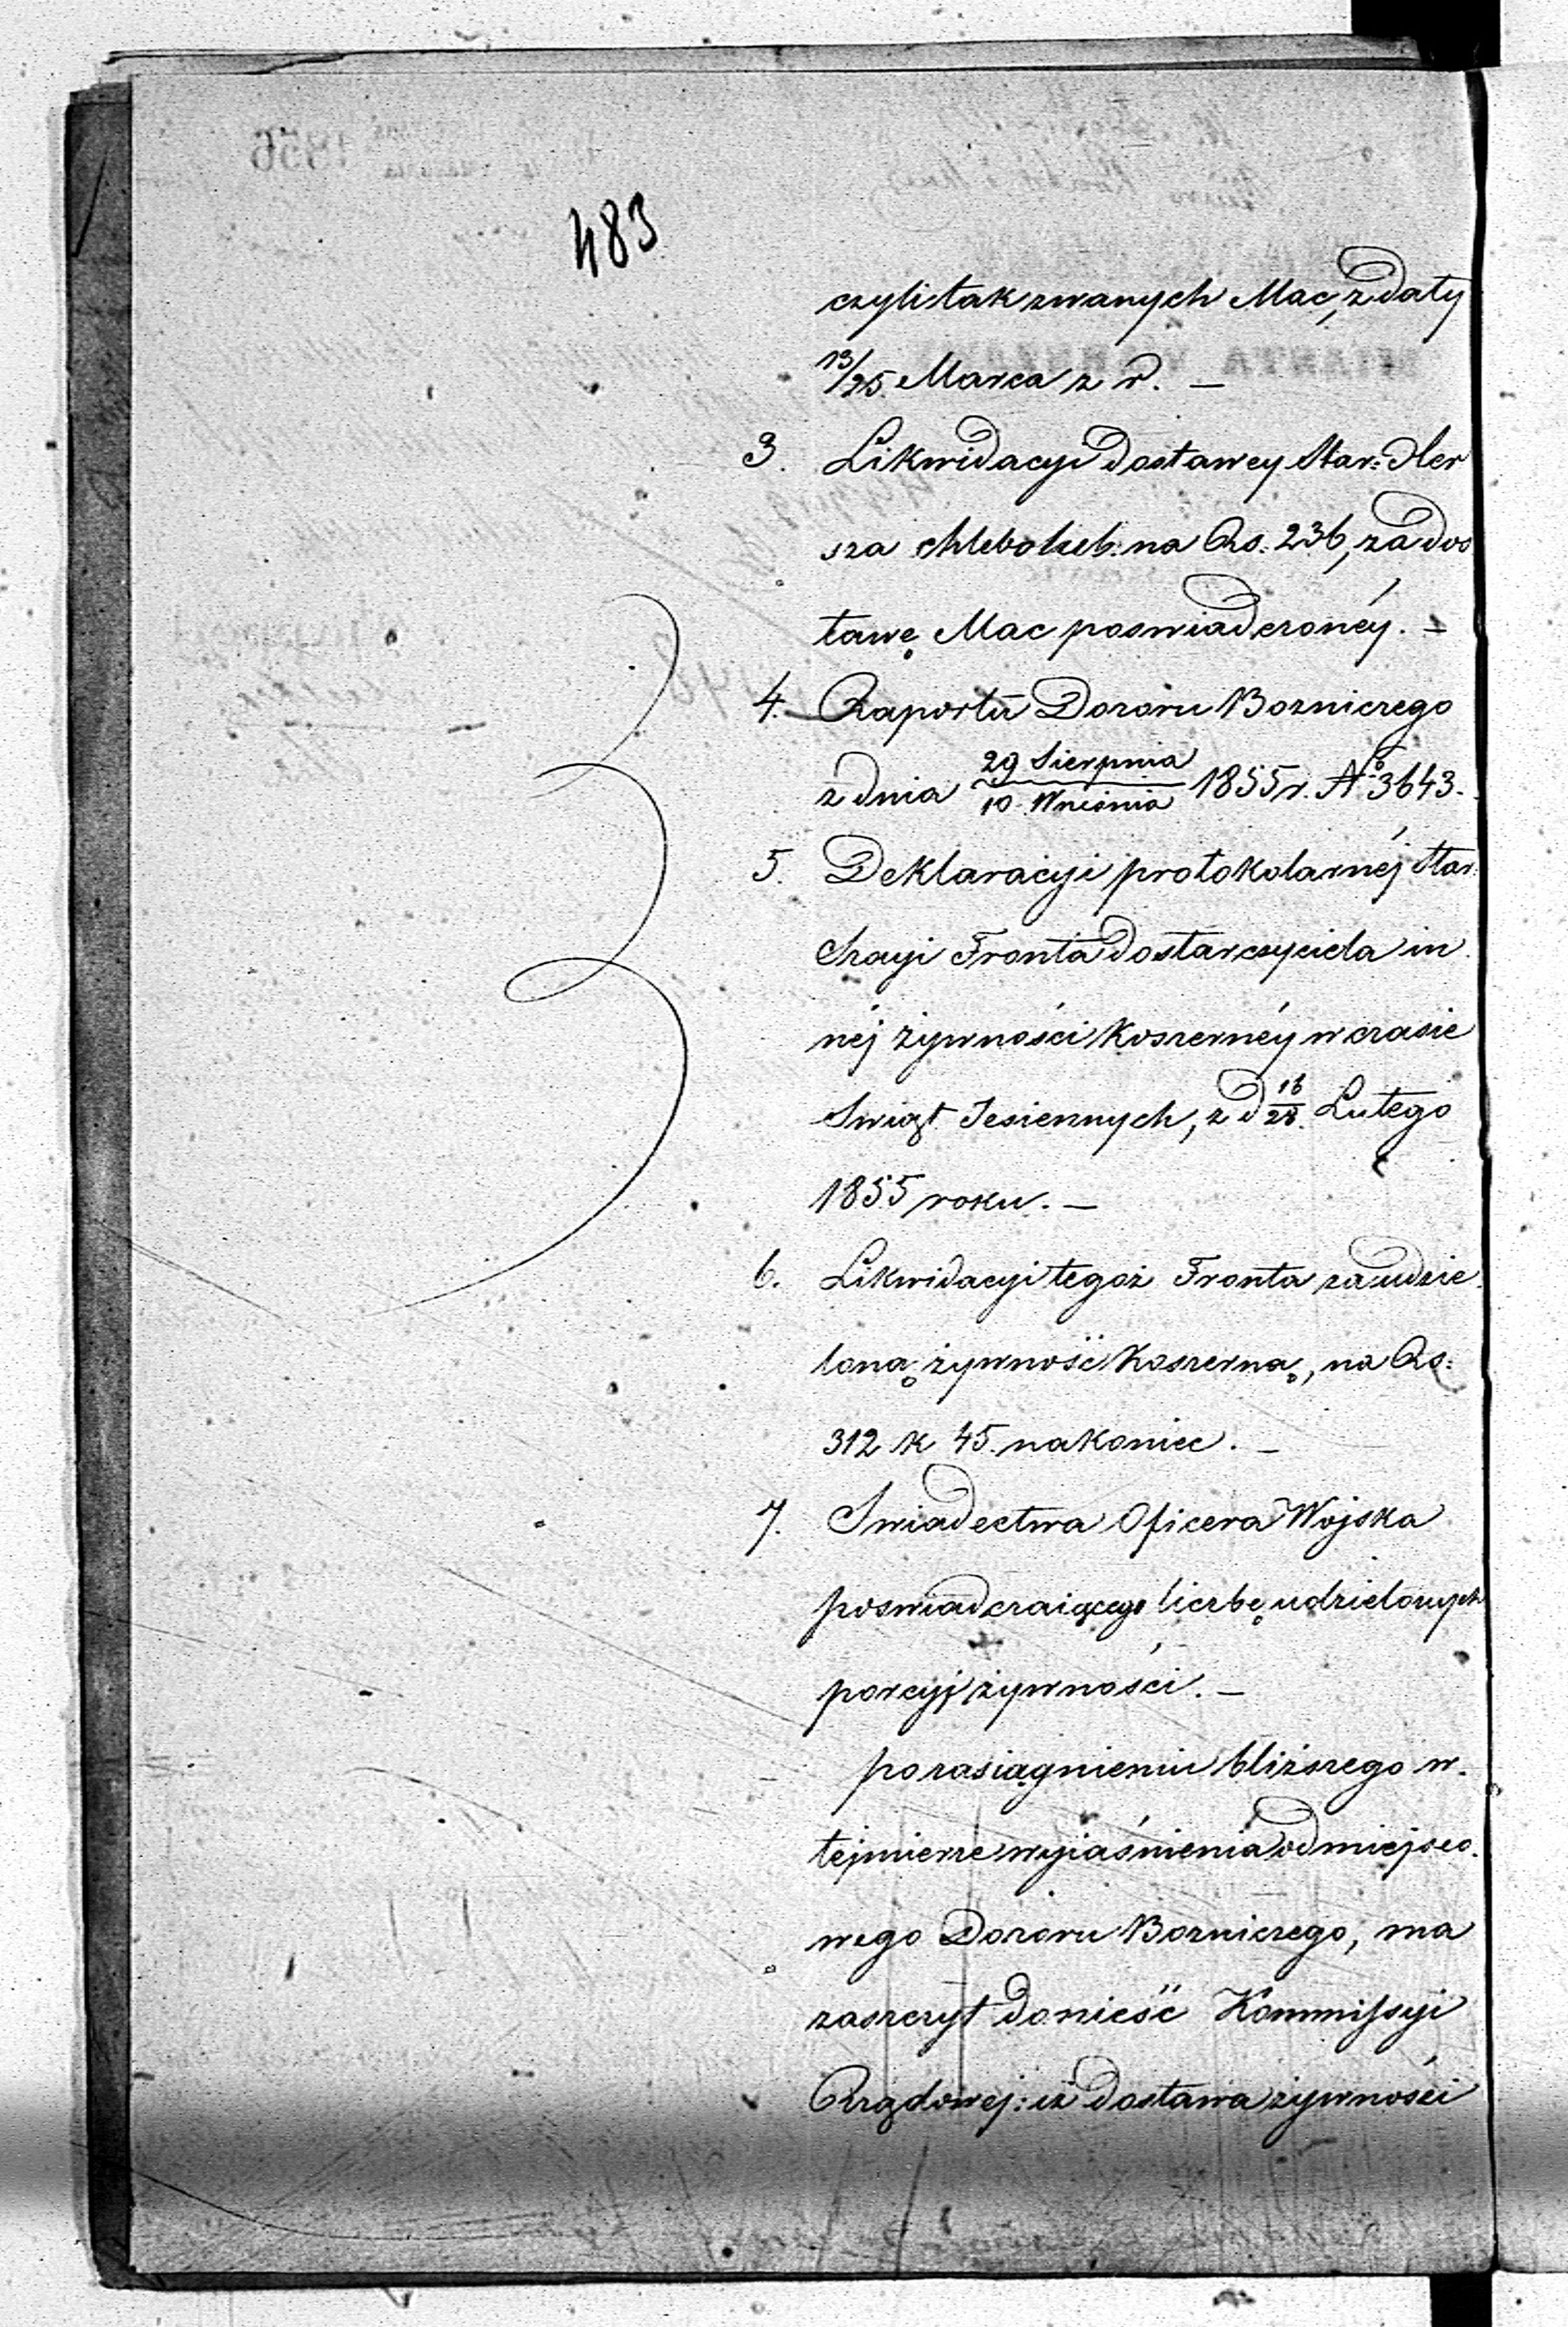 483
czyli tak zwanych Mac, z daty
13/25. Marca z r. —
3. Likwidacyi dostawcy Star: Her
sza Chlebolub: na Rs. 236, za dos
tawę Mac poswiadczonéy. —
4. Raportu Dozoru Bozniczego
z dnia 29 Sierpnia/10 Września 1855 r. No 3643.
5. Deklaracyi protokolarnéj Star:
Chayi Fronta dostarczyciela in
néj żywności Koszernéy w czasie
Swiąt Jesiennych, z d 16/28. Lutego
1855 roku. —
6. Likwidacyi tegoż Fronta za udzie
loną żywność Koszerną, na Rs:
312 k 45. nakoniec. —
7. Swiadectwa Oficera Wojska
poswiadczaiącego liczbę udzielonych
porcyj żywności. —
po zasiągnieniu bliższego w.
tej mierze wyiaśnienia od miejsco.
wego Dozoru Bozniczego, ma
zaszczyt donieść Kommissyi
Rządowej: iż dostawa żywności